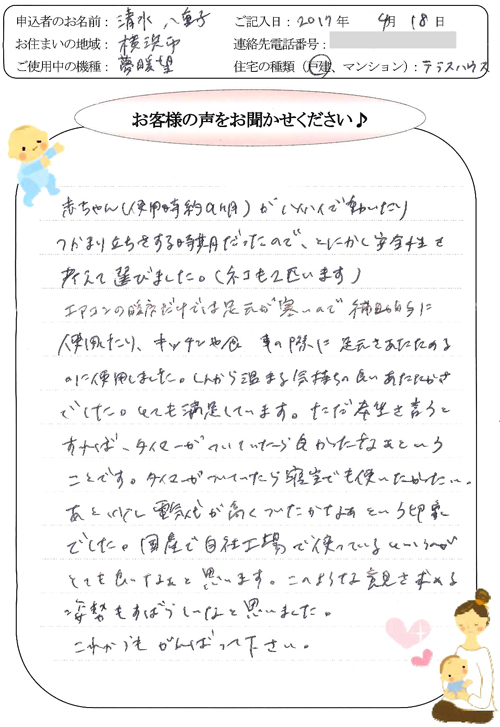 申込者のお名前: 清水 八重子 ご記入日: 2017年 4月 18日
お住まいの地域: 横浜市 連絡先電話番号:
ご使用中の機種: 夢暖望 住宅の種類(戸建、マンション): テラスハウス
お客様の声をお聞かせください♪
赤ちゃん(使用時約9ヶ月)がハイハイで動いたり
つかまり立ちをする時期だったので、とにかく安全性を
考えて選びました。(ネコも2匹います)
エアコンの暖房だけでは足元が寒いので補助的に
使用したり、キッチンや食事の際に足元をあたためる
のに使用しました。しんから温まる気持ちの良いあたたかさ
でした。とても満足しています。ただ希望を言うと
すれば、タイマーがついていたら良かったなぁという
ことです。タイマーがついていたら寝室でも使いたかったい。
あと少し電気代が高くついたかなぁという印象
でした。国産で自社工場で使っているというのが
とても良いなぁと思います。このような意見を求める
姿勢もすばらしいなと思いました。
これからもがんばって下さい。